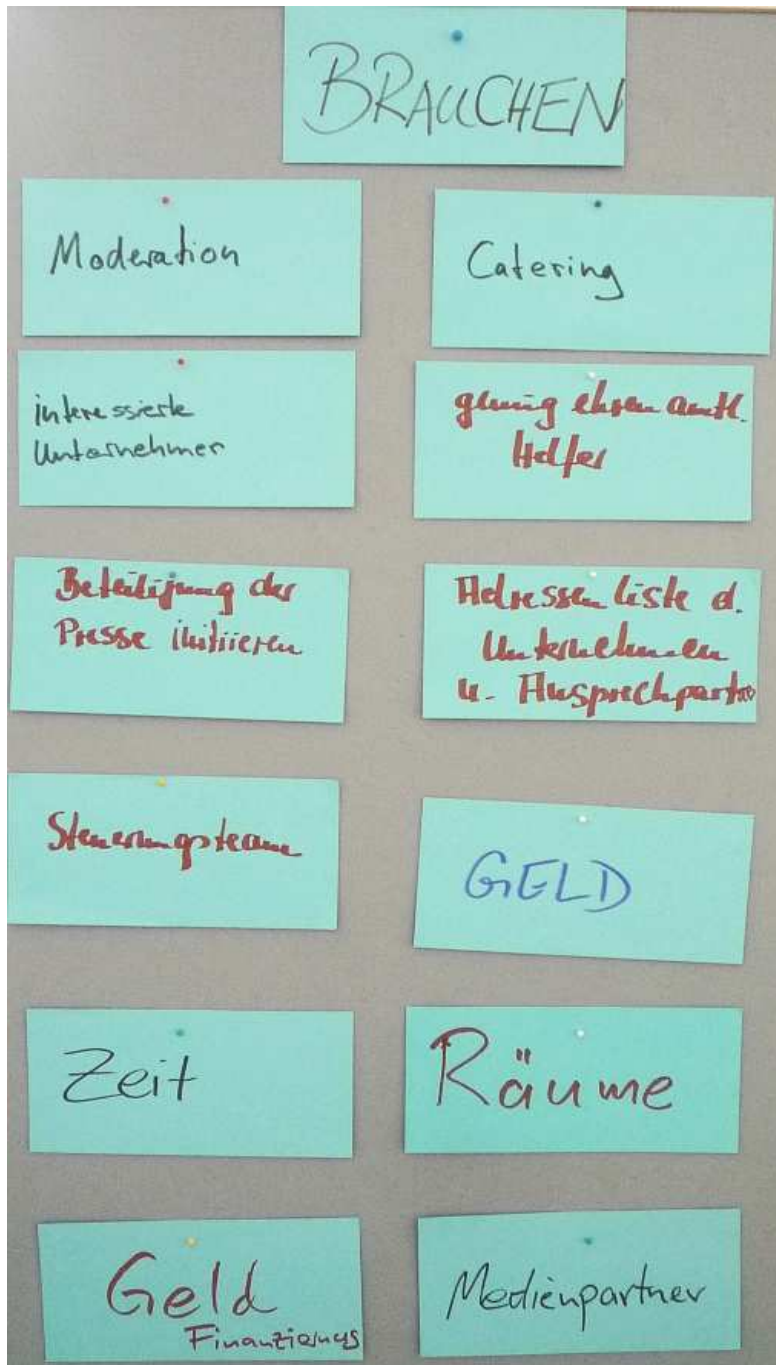 BRAUCHEN
Moderation
Catering
interessierte
Unternehmer
genug ehrenamtl.
Helfer
Beteiligung der
Presse initiieren
Adressenliste d.
Unternehmen
u. Ansprechpartner
Steuerungsteam
GELD
Zeit
Räume
Geld
Finanzierung
Medienpartner